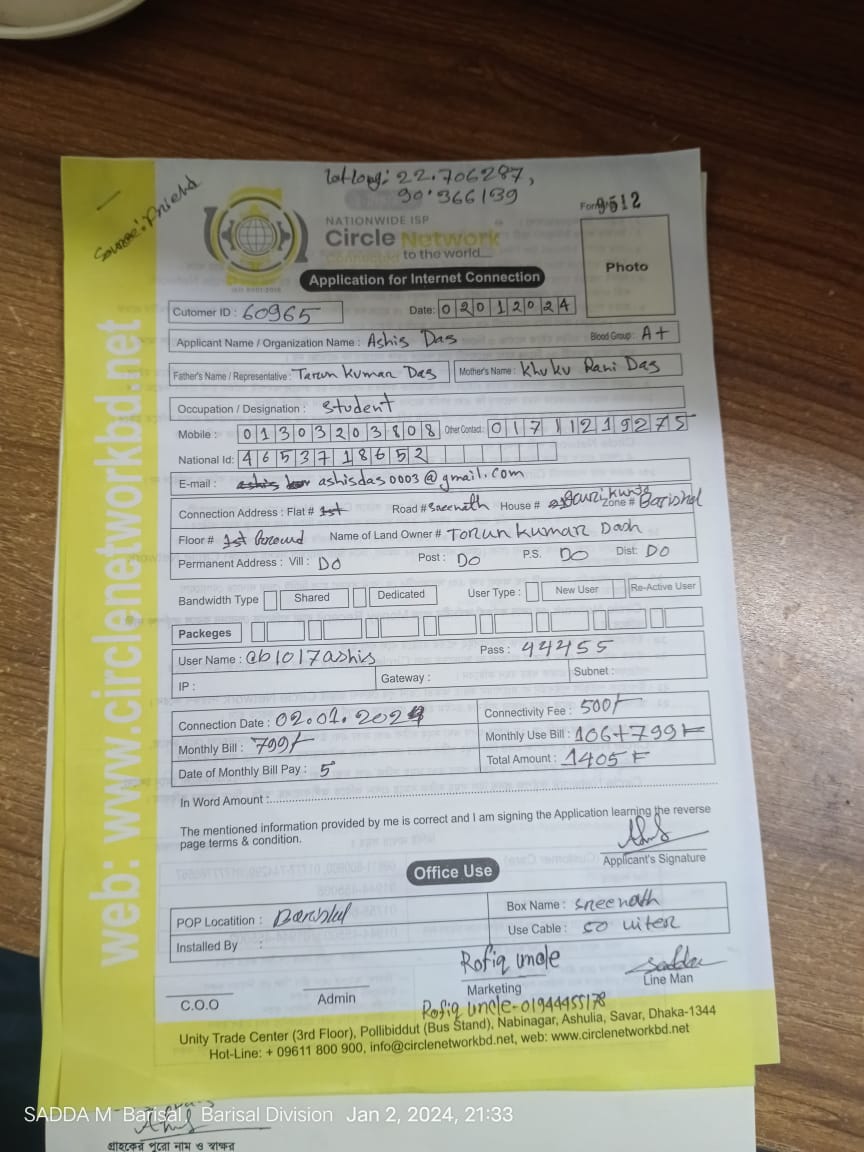 lat long: 22.706287,
90.366139
Source: Friend
Form 9512
NATIONWIDE ISP
Circle Network
Connected to the world...
ISO 9001:2015
Application for Internet Connection
Photo
Cutomer ID : 60965 Date: 02012024
Applicant Name / Organization Name : Ashis Das Blood Group : A+
Father's Name / Representative : Tarun Kumar Das Mother's Name : Khuku Rani Das
Occupation / Designation : Student
Mobile : 01303203808 Other Contact : 01711219275
National Id: 4653718652
E-mail : ashis ashisdas0003@gmail.com
Connection Address : Flat # 1st Road # Sreenath House # Zone # Barishal
Floor # 1st Name of Land Owner # Torun Kumar Dash
Permanent Address : Vill : DO Post : DO P.S. DO Dist: DO
Bandwidth Type Shared Dedicated User Type : New User Re-Active User
Packeges
User Name : @b1017ashis Pass : 44455
IP : Gateway : Subnet :
Connection Date : 02.01.2024 Connectivity Fee : 500/-
Monthly Bill : 799/- Monthly Use Bill : 106+799/-
Date of Monthly Bill Pay : 5 Total Amount : 1405/-
In Word Amount :
The mentioned information provided by me is correct and I am signing the Application learning the reverse
page terms & condition.
Applicant's Signature
Office Use
POP Locatition : Box Name : Sreenath
Installed By : Use Cable : 50
Rofiq uncle
C.O.O Admin Marketing Line Man
Rofiq uncle-01944455178
Unity Trade Center (3rd Floor), Pollibiddut (Bus Stand), Nabinagar, Ashulia, Savar, Dhaka-1344
Hot-Line: + 09611 800 900, info@circlenetworkbd.net, web: www.circlenetworkbd.net
web: www.circlenetworkbd.net
SADDA M Barisal Barisal Division Jan 2, 2024, 21:33
গ্রাহকের পুরো নাম ও স্বাক্ষর